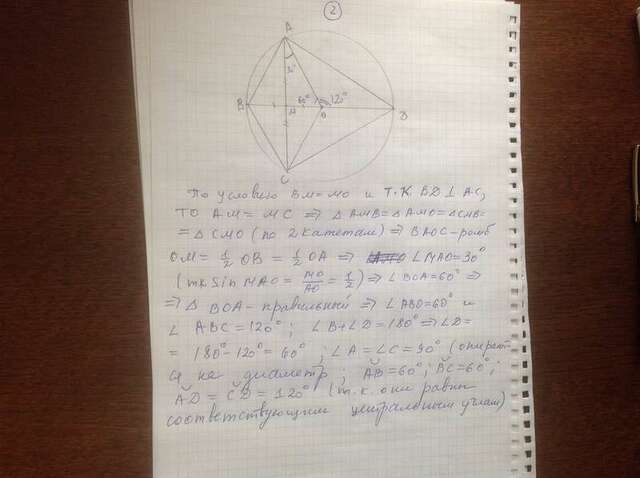 2
A
30°
B
M
60°
120°
O
D
C
По условию BM=MO и т.к BD⊥AC,
то AM=MC ⇒ △AMB=△AMO=△CMB=
=△CMO (по 2 катетам) ⇒ BAOC-ромб
OM=1/2 OB=1/2 OA ⇒ ∠MAO=30°
(тк sin MAO=MO/AO=1/2) ⇒ ∠BOA=60° ⇒
⇒ △ BOA-правильный ⇒ ∠ABO=60° и
∠ ABC=120°; ∠B+∠D=180° ⇒ ∠D=
=180°-120°=60°; ∠A=∠C=90° (опирают-
ся на диаметр; ᴗAB=60°; ᴗBC=60°;
ᴗAD=ᴗCD=120° (т.к. они равны
соответствующим центральным углам)